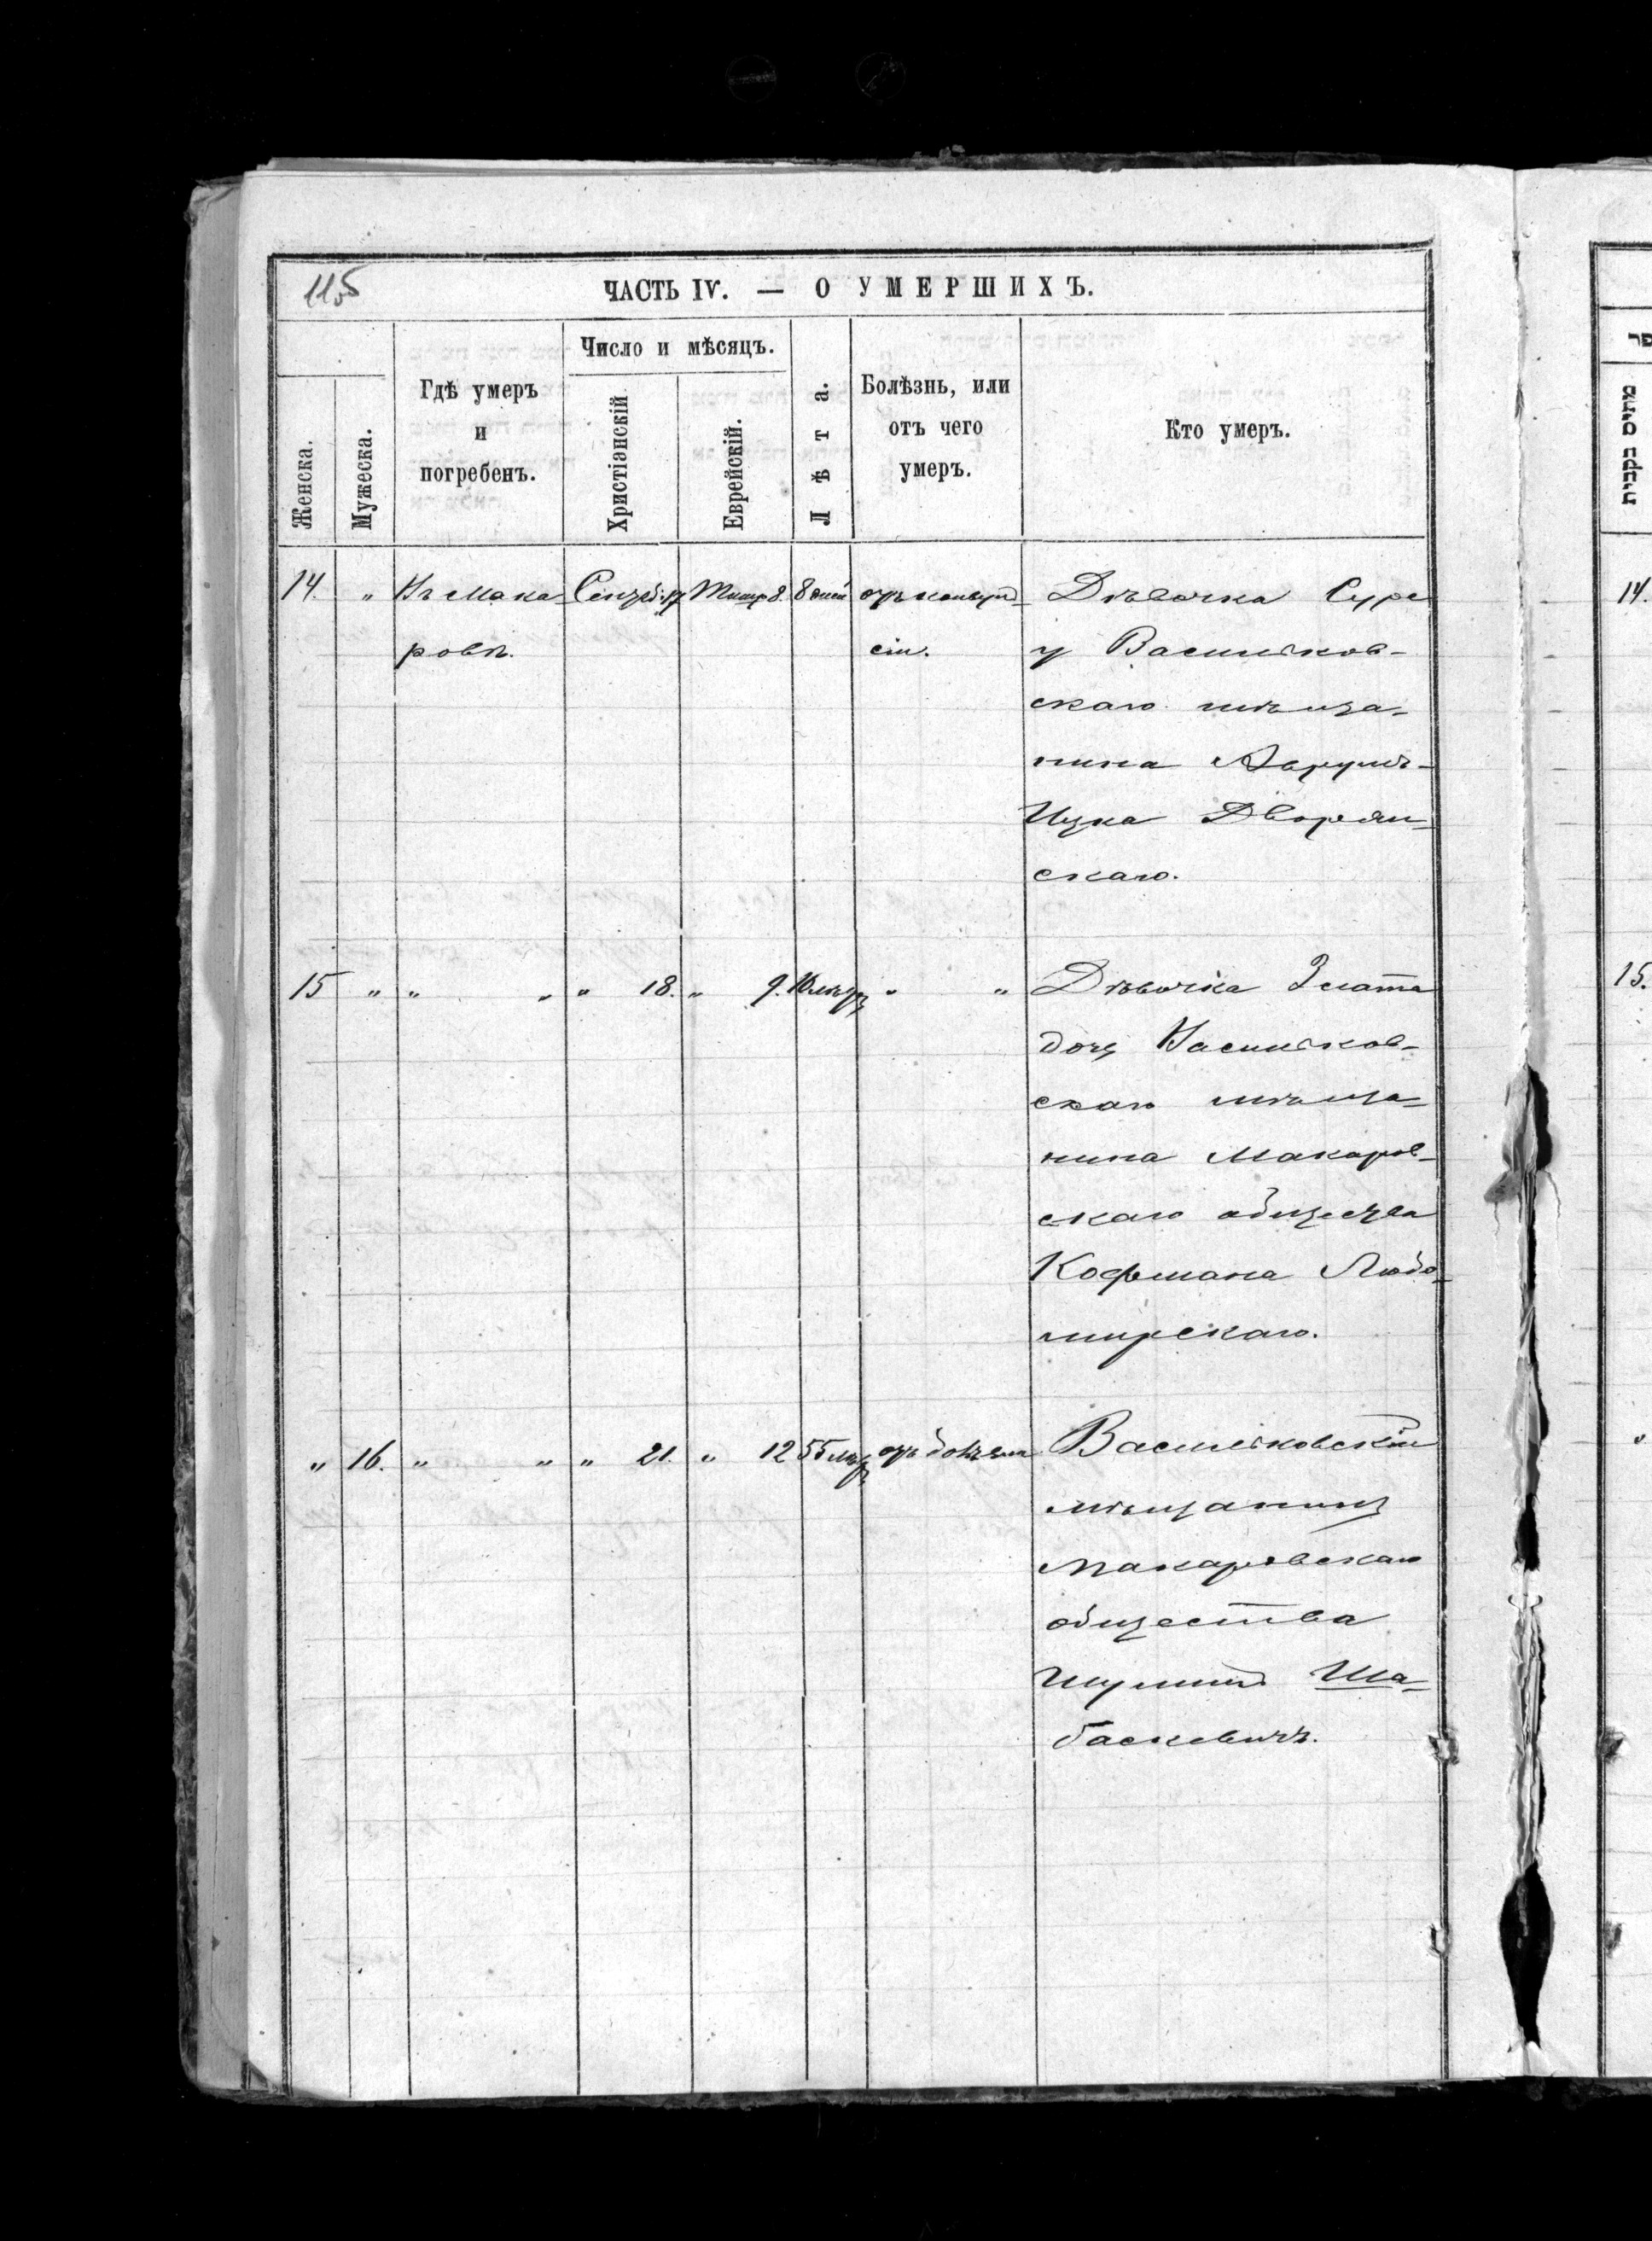 115
ЧАСТЬ IV. — О УМЕРШИХЪ.
Женска.
Мужеска.
Гдѣ умеръ
и
погребенъ.
Число и мѣсяцъ.
Христіэнскій
Еврейскій.
Лѣта.
Болѣзнь, или
отъ чего
умеръ.
Кто умеръ.
14. " Въ Мака- Сентяб. 17 Тишр 8. 8 дней отъ конвул- Дѣвочка Сура
ровѣ. сіи. у Васильков-
скаго мѣща-
нина Аврумъ-
Ицка Дворян-
скаго.
15 " " " " 18. " 9. 10 лѣтъ " " Дѣвочка Злата
дочь Васильков-
скаго мѣща-
нина Макаров-
скаго общества
Кофмана Любо-
мирскаго.
" 16. " " " 21. " 12 55 лѣтъ отъ Васильковскій
мѣщанинъ
Макаровскаго
общества
Шулимъ Ша-
баскевичъ.
פר
מהים הקבית
14.
15.
"